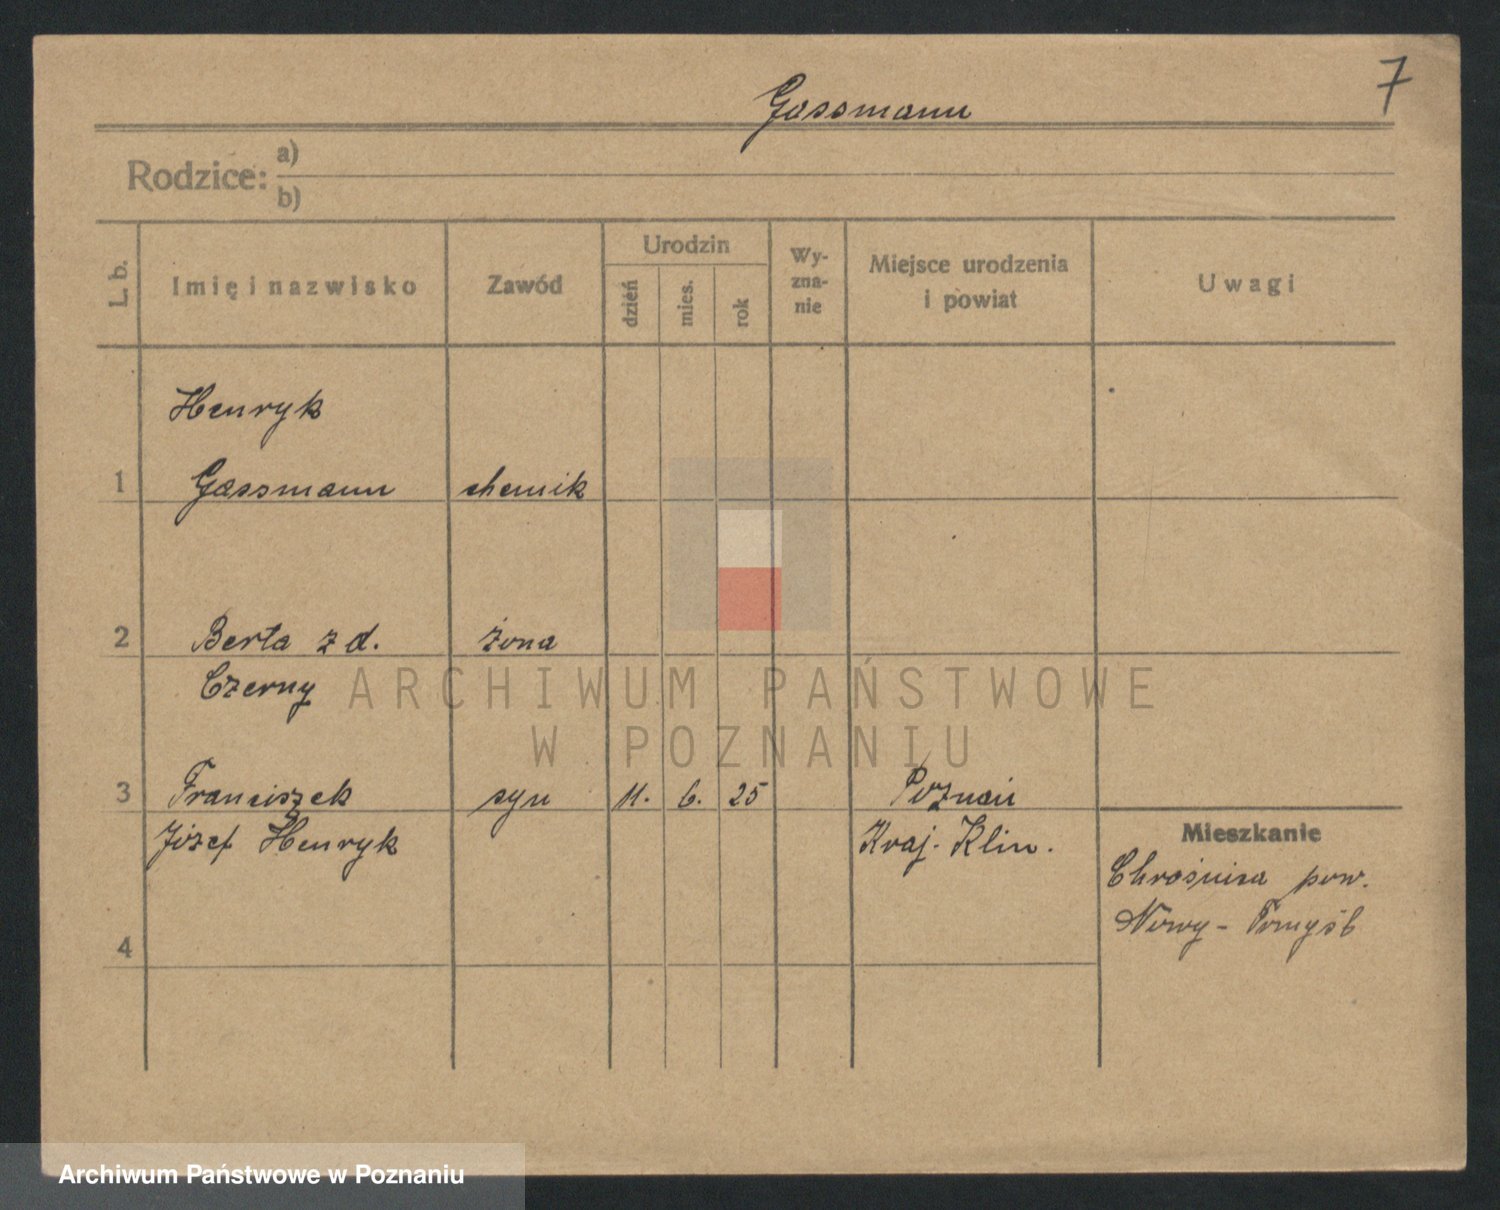 7
Gassmann
Rodzice: a)
b)
L. b. Imię i nazwisko Zawód Urodzin dzień mies. rok Wy-zna-nie Miejsce urodzenia i powiat Uwagi
Henryk
1 Gassmann chemik
2 Berta z d. żona
Czerny
3 Franciszek syn 11. 6. 25 Poznań
Józef Henryk Kraj. Klin.
Mieszkanie
Chrośnica pow.
Nowy - Tomyśl
4
ARCHIWUM PAŃSTWOWE
W POZNANIU
Archiwum Państwowe w Poznaniu